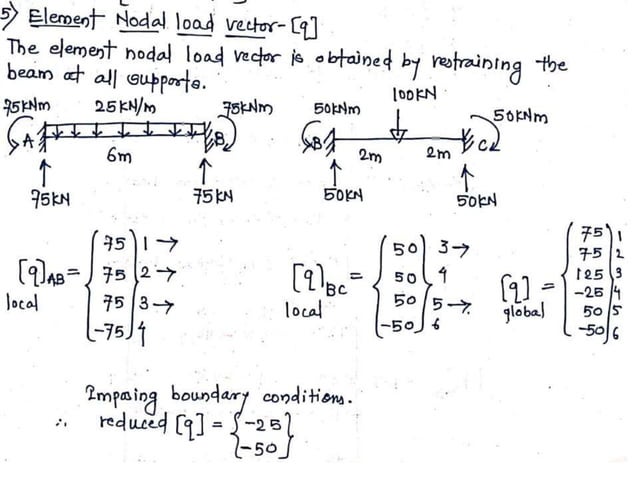 5) Element Nodal load vector-[q]
The element nodal load vector is obtained by restraining the
beam at all supports.
75KNm 25KN/m 75KNm 50KNm 100KN 50KNm
A B B C
6m 2m 2m
75KN 75KN 50KN 50KN
[q]AB = {75 75 75 -75} 1→ 2→ 3→ 4
local
[q]BC = {50 50 50 -50} 3→ 4 5→ 6
local
[q] = {75 75 125 -25 50 -50} 1 2 3 4 5 6
global
Imposing boundary conditions.
∴ reduced [q] = {-25
-50}